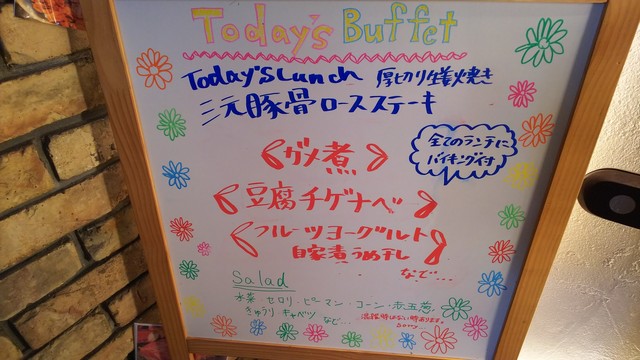 Today's Buffet
Today's Lunch 厚切り生姜焼き
三元豚骨ロースステーキ
全てのランチに
バイキング付
ガメ煮
豆腐チゲナベ
フルーツヨーグルト
自家煮うめ干し
など…
Salad
水菜・セロリ・ピーマン・コーン・赤玉葱
きゅうり キャベツ など…
混雑時はない時あります。
Sorry…